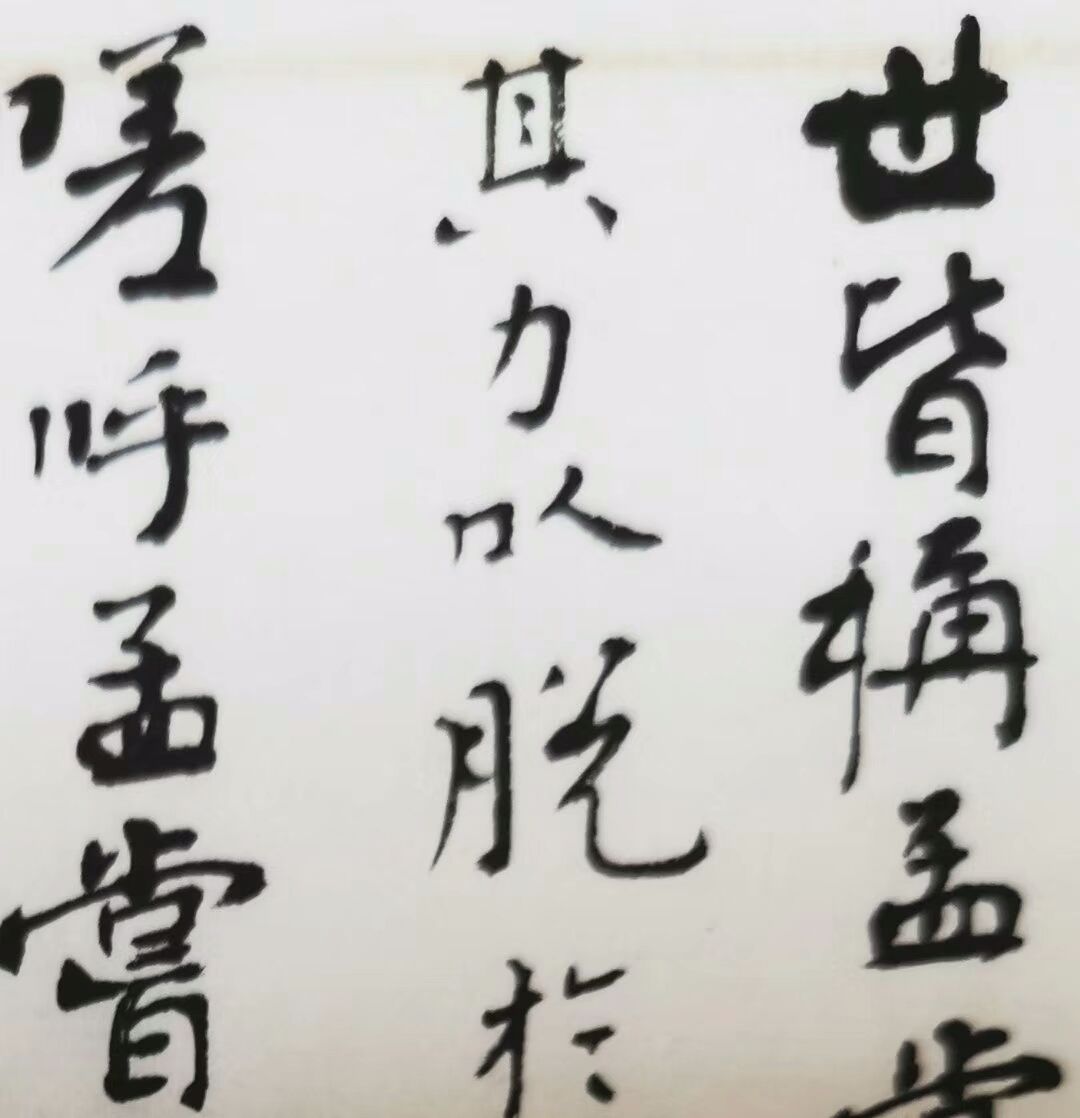 世皆稱孟嘗
其力以脱於
嗟呼孟嘗